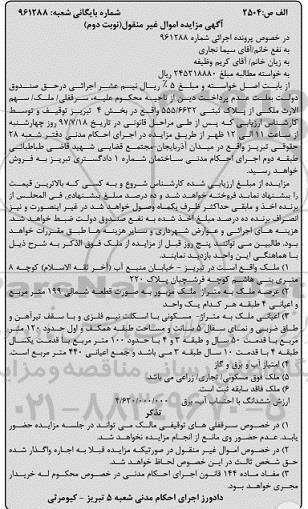 الف ص: ۲۵۰۴ شماره بایگانی شعبه: ۹۶۱۲۸۸
آگهی مزایده اموال غیر منقول(نوبت دوم)
در خصوص پرونده اجرائی شماره ۹۶۱۲۸۸
به نفع خانم/آقای سیما نجاری
به زیان خانم/ آقای کریم وظیفه
به خواسته مطالبه مبلغ ۲۴۵۲۱۸۸۸۰ ریال
از بابت اصل خواسته و مبلغ ۵ ٪ ریال نیم عشر اجرائی درحق صندوق
دولت بعلت عدم پرداخت دین از ناحیه محکوم علیه، سرقفلی/ملک/ سهم
الارث ملکی از پلاک ثبتی ۵۵۵/۶۶۳۲ واقع در بخش ۴ تبریز توقیف و توسط
کارشناس ارزیابی که پس از طی مراحل قانونی در تاریخ ۹۷/۷/۱۸ روز چهارشنبه
ساعت ۱۱ الی ۱۲ ظهر از طریق مزایده در اجرای احکام مدنی دفتر شعبه ۲۸
حقوقی تبریز واقع در میدان آذربایجان-مجتمع قضایی شهید قاضی طباطبائی
طبقه دوم اجرای احکام مدنی ساختمان شماره ۱ دادگستری تبریز به فروش
خواهد رسید.
مزایده از مبلغ ارزیابی شده کارشناس شروع و به کسی که بالاترین قیمت
را پیشنهاد نماید فروخته خواهد شد و ده درصد مبلغ پیشنهادی فی المجلس از
برنده اخذ و مابقی حداکثر ظرف یکماه وصول خواهد شد در غیر اینصورت و نیز
انصراف برنده ده درصد مبلغ اخذ شده به نفع صندوق دولت ضبط خواهد شد
هزینه های اجرائی و عوارض شهرداری و سایر هزینه ها طبق مقررات خواهد
بود. طالبین می توانند پنج روز قبل از مزایده از ملک فوق الذکر به شرح ذیل
با هماهنگی این واحد بازدید نمایند.
۱) ملک واقع است در تبریز – خیابان منبع آب (آخر ثقه الاسلام) کوچه ۸
متری بنی هاشم کوچه فرشچیان پلاک ۲۲۰
۲) عرصه ملک به متراژ ملک مزبور به صورت قطعه شمالی ۱۹۹ متر مربع
و اعیانی ۴ طبقه هر کدام یک واحد
۳) اعیانی ملک به متراژ- مسکونی با اسکلت نیم فلزی و با سقف تیرآهن و
طاق ضربی و نمای سفال ۵ سانت و مساحت طبقه همکف و اول حدود ۱۲۰ متر
مربع با قدمت ۵۰ سال و طبقه ۳ و ۴ با حدود ۱۰۰ متر مربع با قدمت یکسال
طبقه ۴ با قدمت ۱۰ سال طبقه ۳ می باشد و جمع اعیانی ۴۴۰ متر مربع است.
۴) امتیاز آب و برق و گاز
۵) ملک فوق مسکونی/ تجاری/ زراعی می باشد
۶) ملک فاقد سابقه ثبت است
ارزش ششدانگ با احتساب آب، برق ۴/۶۳۰/۰۰۰/۰۰۰
تذکر
۱) در خصوص سرقفلی های توقیفی مالک می تواند در جلسه مزایده حضور
یابد. عدم حضور وی مانع از انجام مزایده نخواهد شد.
۲) در خصوص اموال غیر منقول در صورتیکه مزایده قبلا به اجاره واگذار شده
حق شخص ثالث در این خصوص لحاظ خواهد شد.
۳) مفاد ماده ۱۴۴ قانون اجرای احکام مدنی در خصوص محکوم له خریدار
مجری خواهد بود.
دادورز اجرای احکام مدنی شعبه ۵ تبریز - کیومرثی
۰۲۱-۸۸۳۴۹۶۷۰-۵